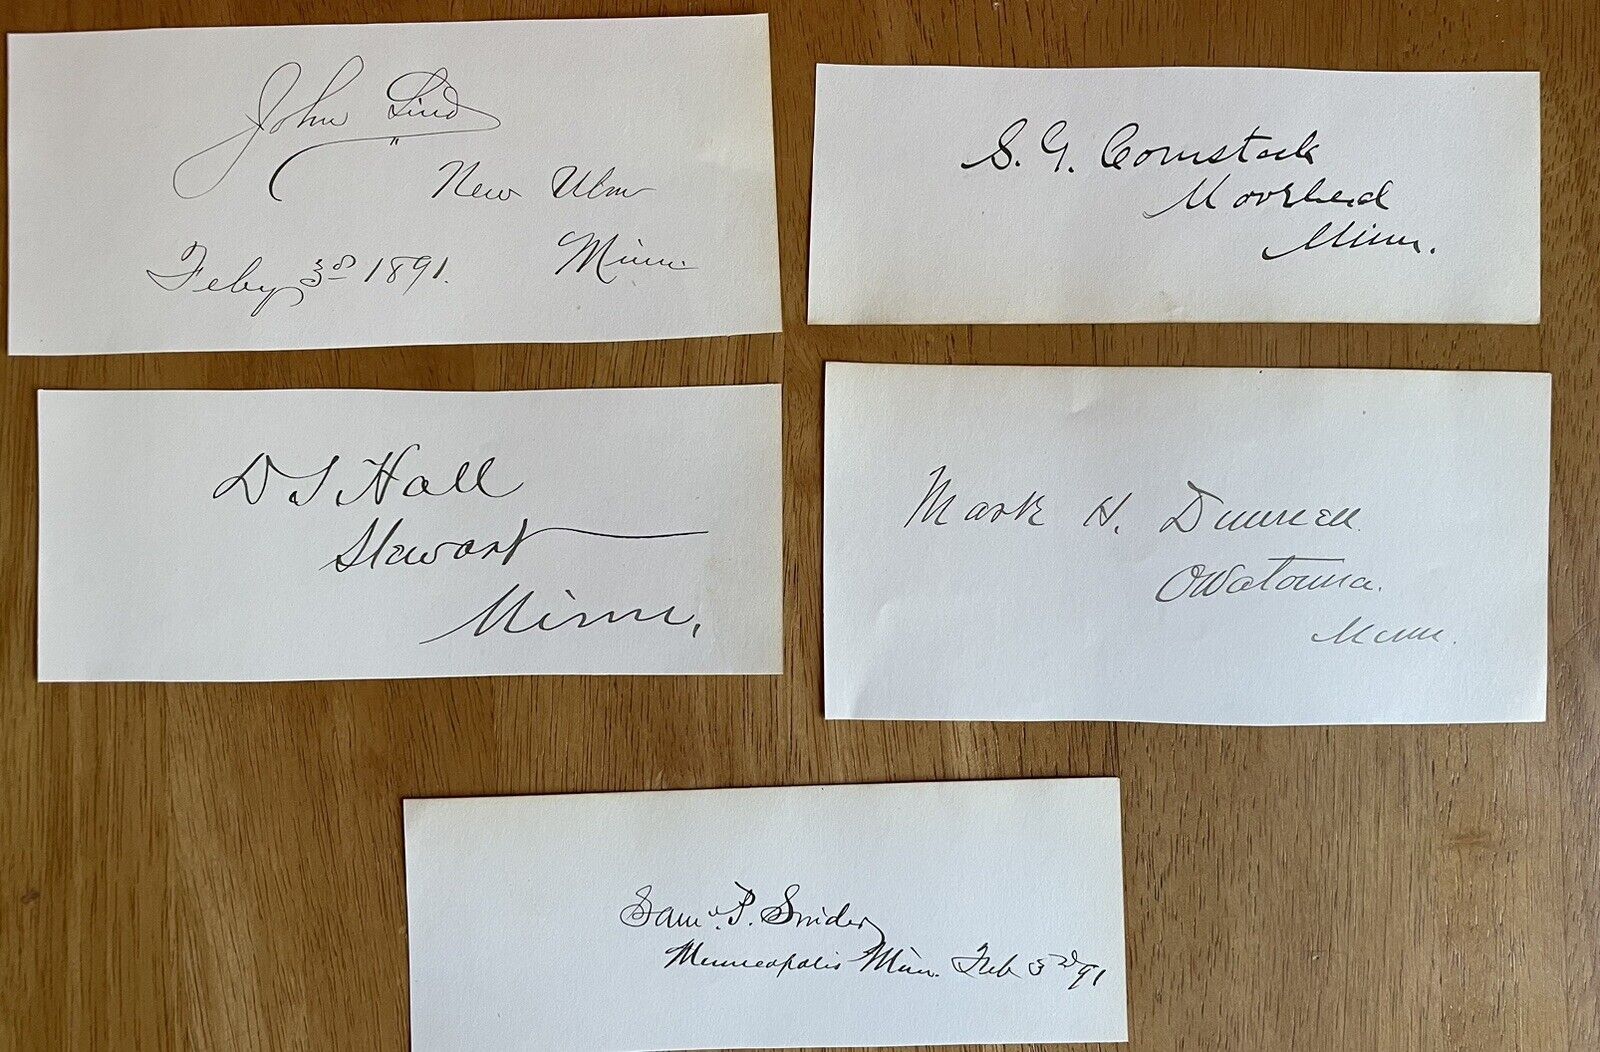 John Lind
New Ulm
Minn.
Feby 3d 1891.
S. G. Comstock
Moorhead
Minn.
D S Hall
Stewart
Minn.
Mark H. Dunnell
Owatonna.
Minn.
Saml. P. Snider
Minneapolis Minn. Feb 3d 91